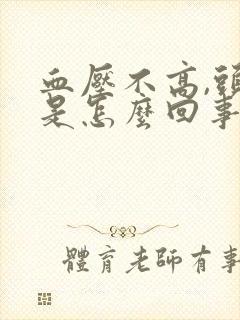 血壓不高,頭
是怎麼回事
體育老師有事